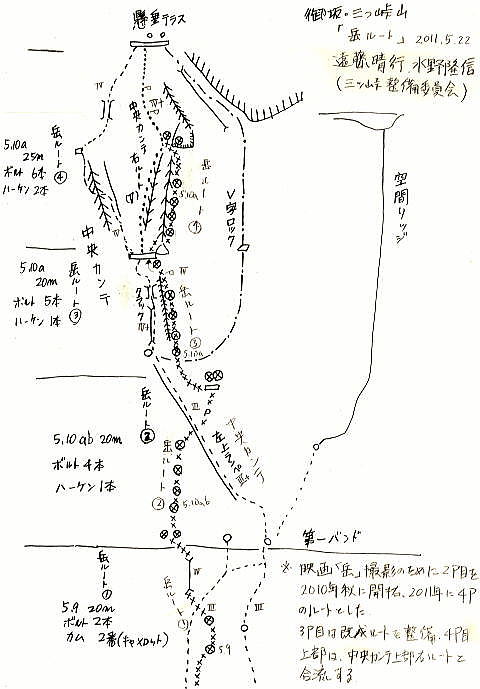 懸垂テラス
御坂・三つ峠山
「岳ルート」 2011.5.22
遠藤晴行、水野隆信
(三ツ峠整備委員会)
空間リッジ
V字ロック
中央カンテ右ルート
(Ⅳ)
岳ルート④
5.10a
岳ルート④
5.10a
25m
ボルト 6本
ハーケン 2本
中央カンテ
岳ルート③
5.10a
20m
ボルト 5本
ハーケン 1本
クラック
Ⅳ+
岳ルート③
5.10a
岳ルート②
5.10ab 20m
ボルト 4本
ハーケン 1本
岳ルート②
5.10ab
Ⅲ
中央カンテ
左上ランペ Ⅲ+
第一バンド
岳ルート①
5.9 20m
ボルト 2本
カム 2番(キャメロット)
岳ルート①
Ⅳ
5.9
Ⅲ
Ⅲ
※ 映画「岳」撮影のために2P目を
2010年秋に開拓、2011年に4P
のルートとした.
3P目は既成ルートを整備、4P目
上部は、中央カンテ上部右ルートと
合流する